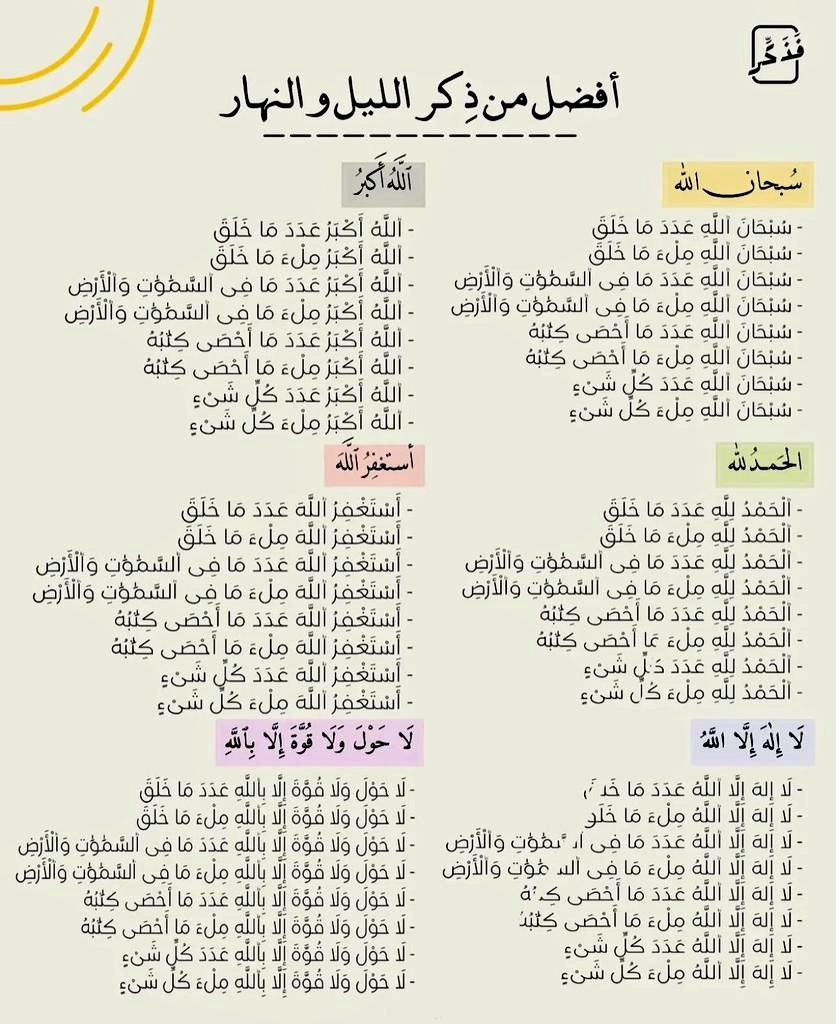 فَذَكِّر
أفضل من ذِكر الليل و النهار
سُبحان الله
- سُبْحَانَ ٱللَّهِ عَدَدَ مَا خَلَقَ
- سُبْحَانَ ٱللَّهِ مِلْءَ مَا خَلَقَ
- سُبْحَانَ ٱللَّهِ عَدَدَ مَا فِى ٱلسَّمَٰوَٰتِ وَٱلْأَرْضِ
- سُبْحَانَ ٱللَّهِ مِلْءَ مَا فِى ٱلسَّمَٰوَٰتِ وَٱلْأَرْضِ
- سُبْحَانَ ٱللَّهِ عَدَدَ مَا أَحْصَى كِتَٰبُهُ
- سُبْحَانَ ٱللَّهِ مِلْءَ مَا أَحْصَى كِتَٰبُهُ
- سُبْحَانَ ٱللَّهِ عَدَدَ كُلِّ شَىْءٍ
- سُبْحَانَ ٱللَّهِ مِلْءَ كُلِّ شَىْءٍ
ٱللَّهُ أَكبَرُ
- ٱللَّهُ أَكْبَرُ عَدَدَ مَا خَلَقَ
- ٱللَّهُ أَكْبَرُ مِلْءَ مَا خَلَقَ
- ٱللَّهُ أَكْبَرُ عَدَدَ مَا فِى ٱلسَّمَٰوَٰتِ وَٱلْأَرْضِ
- ٱللَّهُ أَكْبَرُ مِلْءَ مَا فِى ٱلسَّمَٰوَٰتِ وَٱلْأَرْضِ
- ٱللَّهُ أَكْبَرُ عَدَدَ مَا أَحْصَى كِتَٰبُهُ
- ٱللَّهُ أَكْبَرُ مِلْءَ مَا أَحْصَى كِتَٰبُهُ
- ٱللَّهُ أَكْبَرُ عَدَدَ كُلِّ شَىْءٍ
- ٱللَّهُ أَكْبَرُ مِلْءَ كُلِّ شَىْءٍ
الحَمدُ لله
- ٱلْحَمْدُ لِلَّهِ عَدَدَ مَا خَلَقَ
- ٱلْحَمْدُ لِلَّهِ مِلْءَ مَا خَلَقَ
- ٱلْحَمْدُ لِلَّهِ عَدَدَ مَا فِى ٱلسَّمَٰوَٰتِ وَٱلْأَرْضِ
- ٱلْحَمْدُ لِلَّهِ مِلْءَ مَا فِى ٱلسَّمَٰوَٰتِ وَٱلْأَرْضِ
- ٱلْحَمْدُ لِلَّهِ عَدَدَ مَا أَحْصَى كِتَٰبُهُ
- ٱلْحَمْدُ لِلَّهِ مِلْءَ مَا أَحْصَى كِتَٰبُهُ
- ٱلْحَمْدُ لِلَّهِ عَدَدَ كُلِّ شَىْءٍ
- ٱلْحَمْدُ لِلَّهِ مِلْءَ كُلِّ شَىْءٍ
أَستَغفِرُ ٱللَّهَ
- أَسْتَغْفِرُ ٱللَّهَ عَدَدَ مَا خَلَقَ
- أَسْتَغْفِرُ ٱللَّهَ مِلْءَ مَا خَلَقَ
- أَسْتَغْفِرُ ٱللَّهَ عَدَدَ مَا فِى ٱلسَّمَٰوَٰتِ وَٱلْأَرْضِ
- أَسْتَغْفِرُ ٱللَّهَ مِلْءَ مَا فِى ٱلسَّمَٰوَٰتِ وَٱلْأَرْضِ
- أَسْتَغْفِرُ ٱللَّهَ عَدَدَ مَا أَحْصَى كِتَٰبُهُ
- أَسْتَغْفِرُ ٱللَّهَ مِلْءَ مَا أَحْصَى كِتَٰبُهُ
- أَسْتَغْفِرُ ٱللَّهَ عَدَدَ كُلِّ شَىْءٍ
- أَسْتَغْفِرُ ٱللَّهَ مِلْءَ كُلِّ شَىْءٍ
لَا إِلَٰهَ إِلَّا اللَّهُ
- لَا إِلَهَ إِلَّا ٱللَّهُ عَدَدَ مَا
- لَا إِلَهَ إِلَّا ٱللَّهُ مِلْءَ مَا
- لَا إِلَهَ إِلَّا ٱللَّهُ عَدَدَ مَا فِى وَٱلْأَرْضِ
- لَا إِلَهَ إِلَّا ٱللَّهُ مِلْءَ مَا فِى وَٱلْأَرْضِ
- لَا إِلَهَ إِلَّا ٱللَّهُ عَدَدَ مَا أَحْصَى
- لَا إِلَهَ إِلَّا ٱللَّهُ مِلْءَ مَا أَحْصَى كِتَٰبُهُ
- لَا إِلَهَ إِلَّا ٱللَّهُ عَدَدَ كُلِّ شَىْءٍ
- لَا إِلَهَ إِلَّا ٱللَّهُ مِلْءَ كُلِّ شَىْءٍ
لَا حَوْلَ وَلَا قُوَّةَ إِلَّا بِٱللَّهِ
- لَا حَوْلَ وَلَا قُوَّةَ إِلَّا بِٱللَّهِ عَدَدَ مَا خَلَقَ
- لَا حَوْلَ وَلَا قُوَّةَ إِلَّا بِٱللَّهِ مِلْءَ مَا خَلَقَ
- لَا حَوْلَ وَلَا قُوَّةَ إِلَّا بِٱللَّهِ عَدَدَ مَا فِى ٱلسَّمَٰوَٰتِ وَٱلْأَرْضِ
- لَا حَوْلَ وَلَا قُوَّةَ إِلَّا بِٱللَّهِ مِلْءَ مَا فِى ٱلسَّمَٰوَٰتِ وَٱلْأَرْضِ
- لَا حَوْلَ وَلَا قُوَّةَ إِلَّا بِٱللَّهِ عَدَدَ مَا أَحْصَى كِتَٰبُهُ
- لَا حَوْلَ وَلَا قُوَّةَ إِلَّا بِٱللَّهِ مِلْءَ مَا أَحْصَى كِتَٰبُهُ
- لَا حَوْلَ وَلَا قُوَّةَ إِلَّا بِٱللَّهِ عَدَدَ كُلِّ شَىْءٍ
- لَا حَوْلَ وَلَا قُوَّةَ إِلَّا بِٱللَّهِ مِلْءَ كُلِّ شَىْءٍ